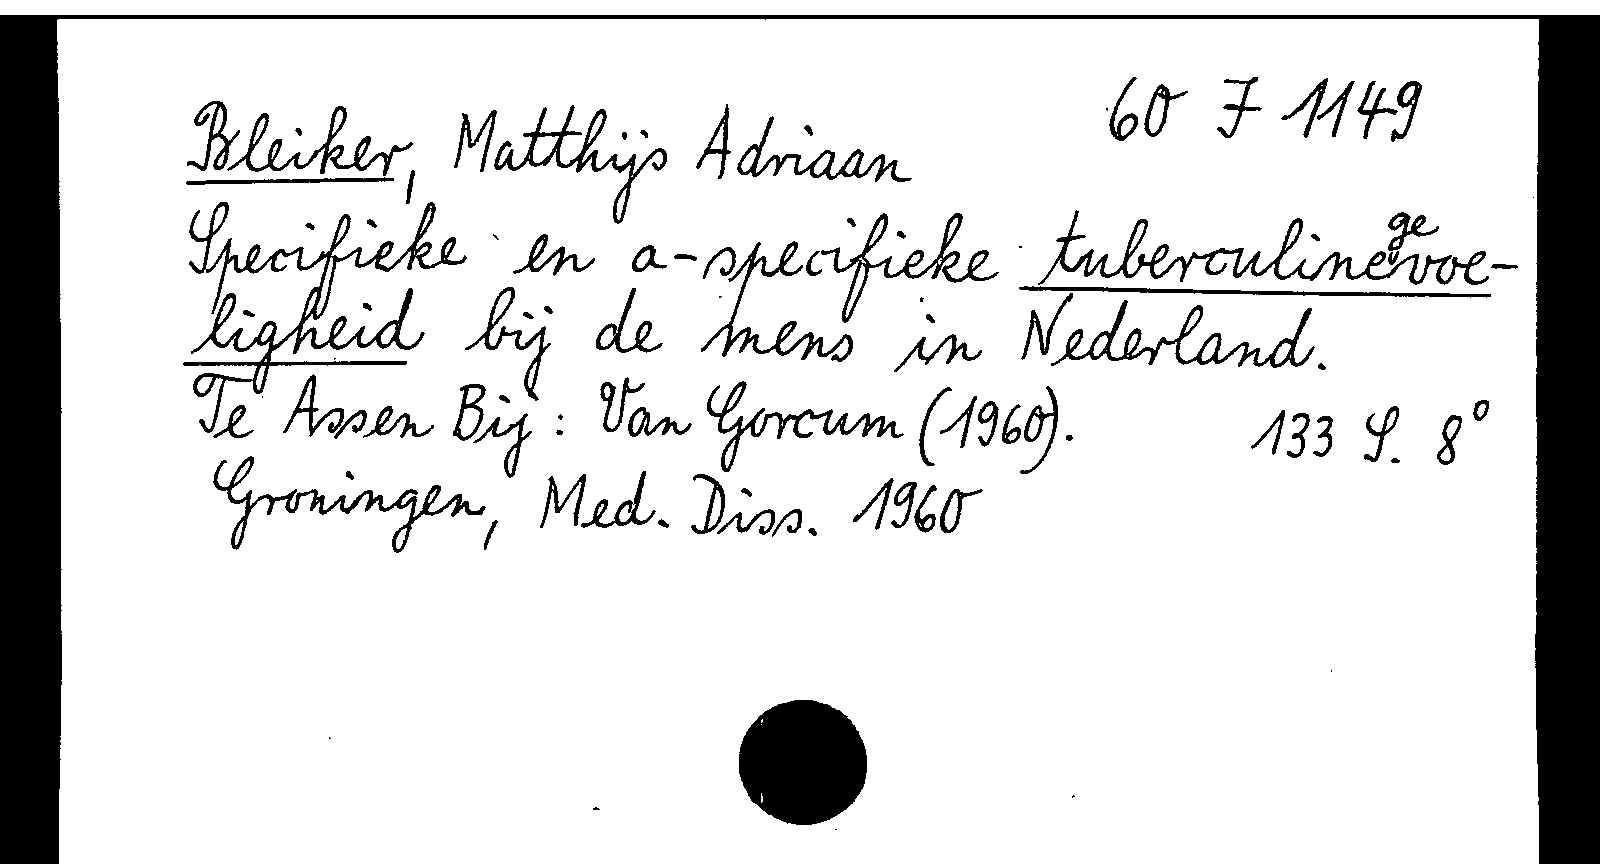 60 F 1149
Bleiker, Matthijs Adriaan
Specifieke en a-specifieke tuberculinegevoe-
ligheid bij de mens in Nederland.
Te Assen Bij: Van Gorcum (1960). 133 S. 8°
Groningen, Med. Diss. 1960